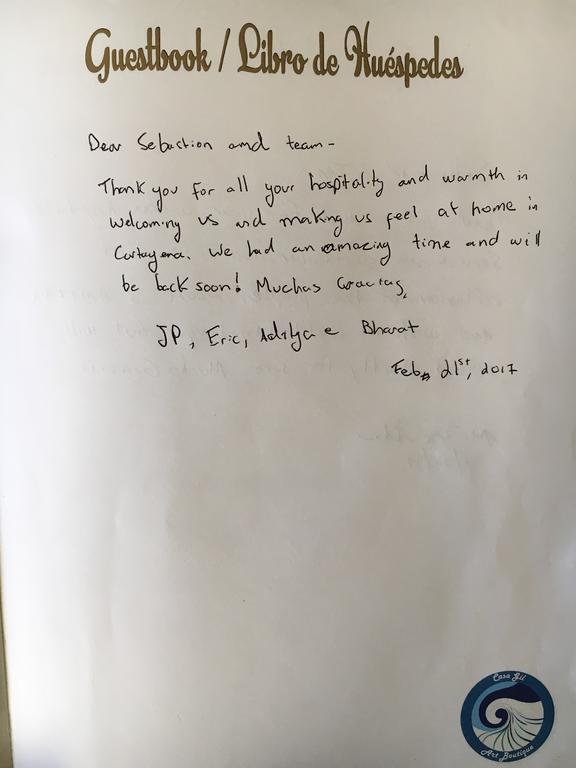 Guestbook / Libro de Huéspedes
Dear Sebastion and team-
Thank you for all your hospitality and warmth in
welcoming us and making us feel at home in
Cartagena. We had an amazing time and will
be back soon! Muchas Gracias,
JP, Eric, Aditya e Bharat
Feb 21st, 2017
Casa Gil
Art Boutique